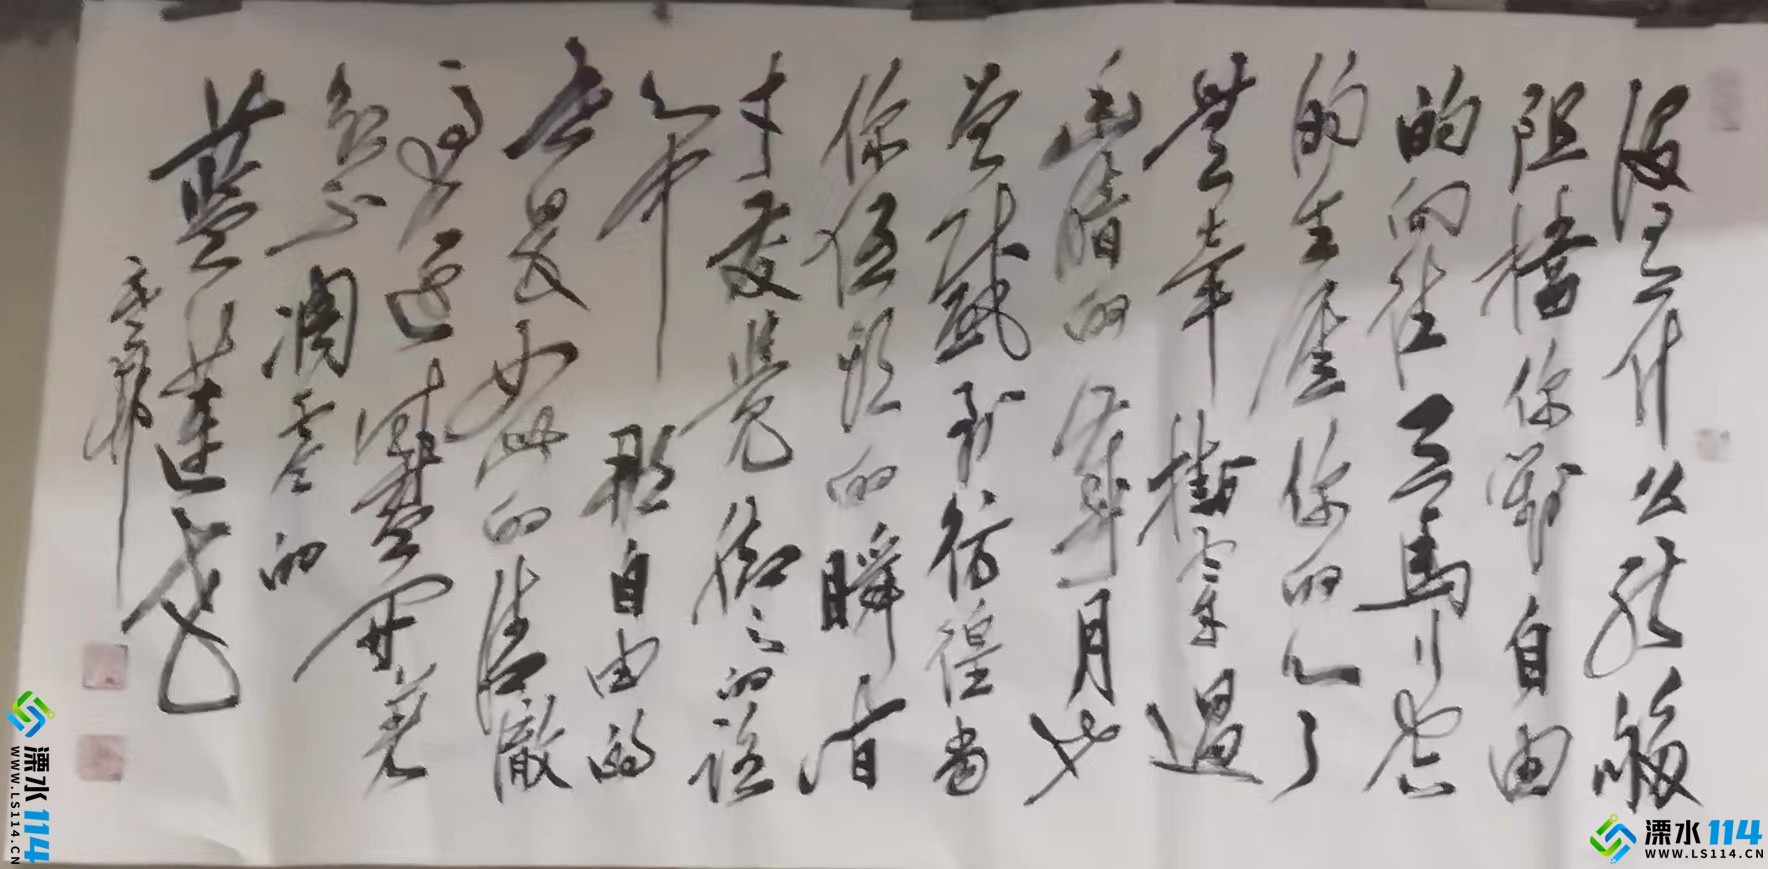 没有什么能够
阻擋你對自由
的向往天馬行空
的生涯你的心了
無牽掛穿過
幽暗的歲月也
曾感到彷徨當
你低頭的瞬間
才發覺腳下的路
心中那自由的
世界如此的清澈
高遠盛開着
永不凋零的
藍蓮花
溧水114
WWW.LS114.CN
溧水114
WWW.LS114.CN